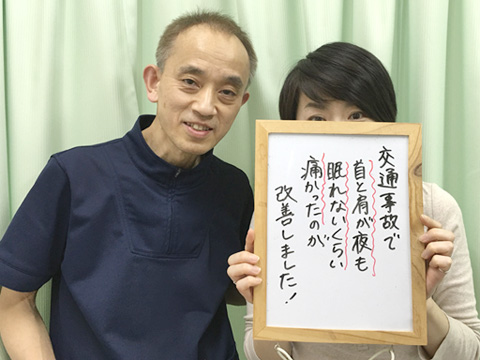 交通事故で
首と肩が夜も
眠れないくらい
痛かったのが
改善しました!